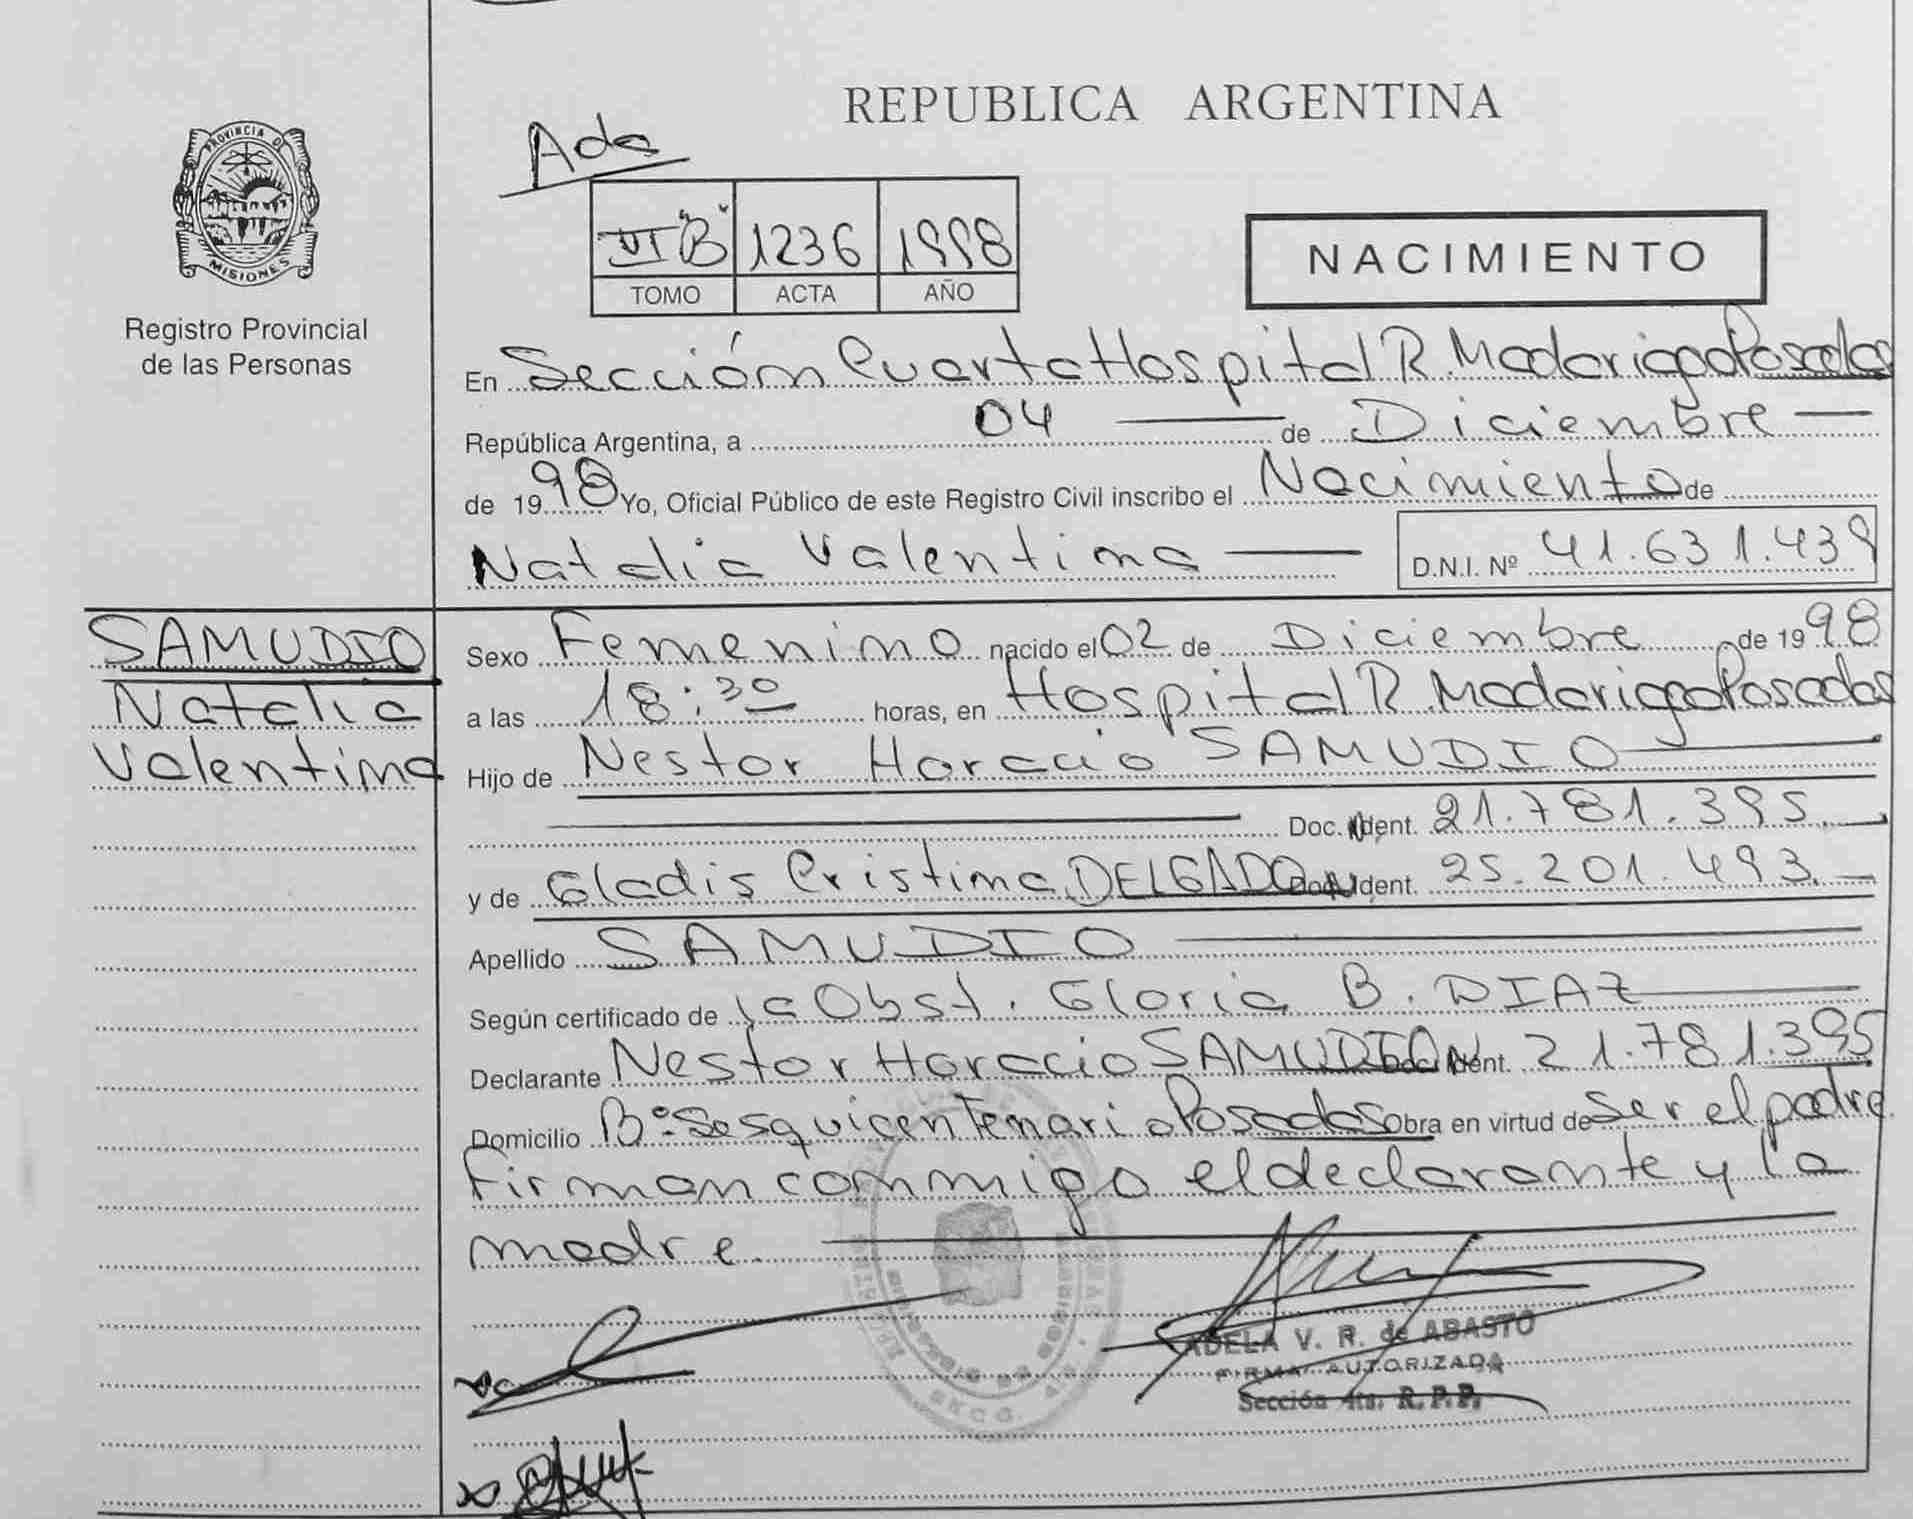 REPUBLICA ARGENTINA
Ada
PROVINCIA DE
MISIONES
Registro Provincial
de las Personas
VI "B" 1236 1998
TOMO ACTA AÑO
NACIMIENTO
En Sección Cuarta Hospital R. Madariaga Posadas
República Argentina, a 04 de Diciembre
de 1998 Yo, Oficial Público de este Registro Civil inscribo el Nacimiento de
Natalia Valentina D.N.I. Nº 41.631.439
SAMUDIO
Natalia
Valentina
Sexo Femenino nacido el 02 de Diciembre de 1998
a las 18:30 horas, en Hospital R. Madariaga Posadas
Hijo de Nestor Horacio SAMUDIO
Doc. Ident. 21.781.395
y de Gladis Cristina DELGADO Doc. Ident. 25.201.493
Apellido SAMUDIO
Según certificado de la Obst. Gloria B. DIAZ
Declarante Nestor Horacio SAMUDIO Doc. Ident. 21.781.395
Domicilio Bº Sesquicentenario Posadas Obra en virtud de Ser el padre
Firman conmigo el declarante y la
madre.
ADELA V. R. de ABASTO
FIRMA AUTORIZADA
Sección 4ta. R.P.P.